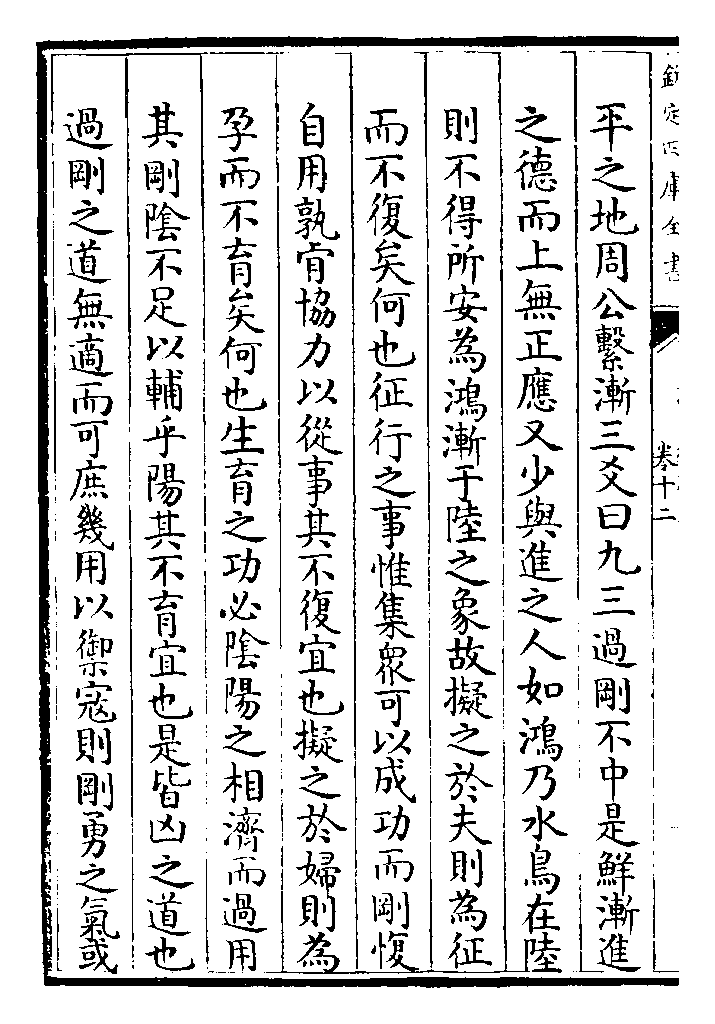 欽定四庫全書
卷十二
平之地周公繫漸三爻曰九三過剛不中是鮮漸進
之德而上無正應又少與進之人如鴻乃水鳥在陸
則不得所安為鴻漸于陸之象故擬之於夫則為征
而不復矣何也征行之事惟集衆可以成功而剛愎
自用孰肯協力以從事其不復宜也擬之於婦則為
孕而不育矣何也生育之功必陰陽之相濟而過用
其剛陰不足以輔乎陽其不育宜也是皆凶之道也
過剛之道無適而可庶幾用以禦寇則剛勇之氣或